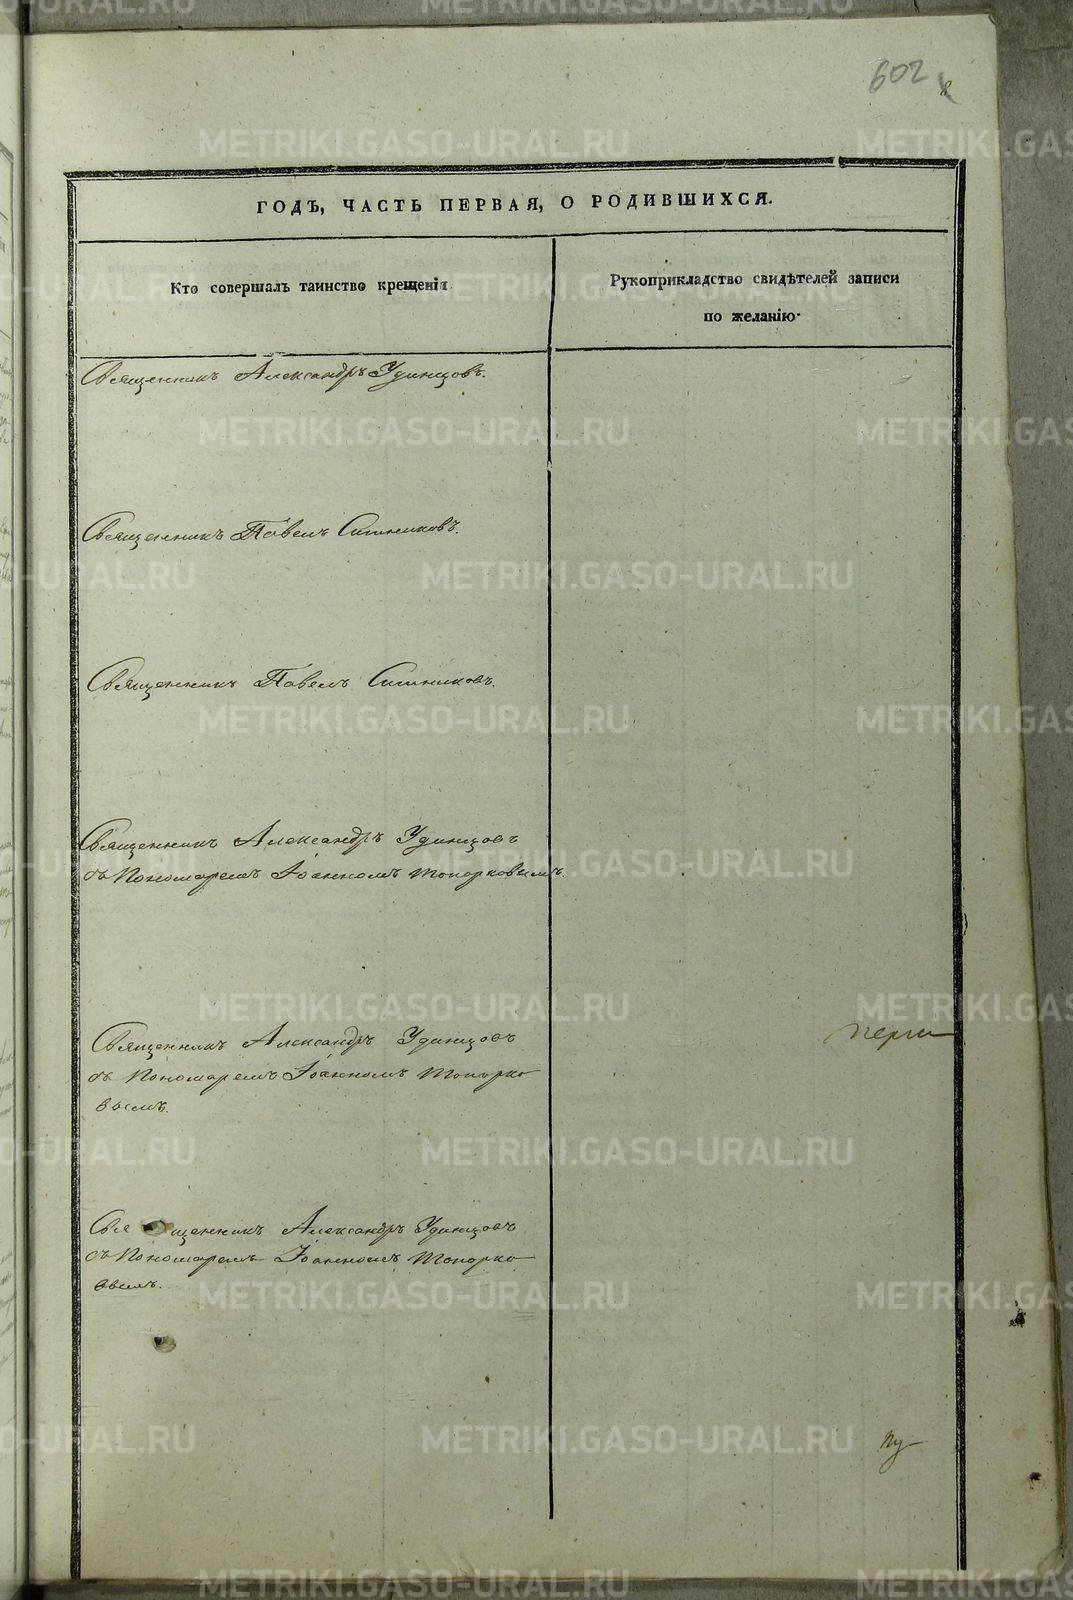 602
ГОДЪ, ЧАСТЬ ПЕРВАЯ, О РОДИВШИХСЯ.
Кто совершалъ таинство крещенія
Рукоприкладство свидѣтелей записи
по желанію.
Священникъ Александръ Удинцовъ.
Священникъ Павелъ Ситниковъ.
Священникъ Павелъ Ситниковъ.
Священникъ Александръ Удинцовъ
съ Пономаремъ Іоанномъ Топорковымъ.
Священникъ Александръ Удинцовъ
съ Пономаремъ Іоанномъ Топорко
вымъ.
Священникъ Александръ Удинцовъ
съ Пономаремъ Іоанномъ Топорко
вымъ.
METRIKI.GASO-URAL.RU